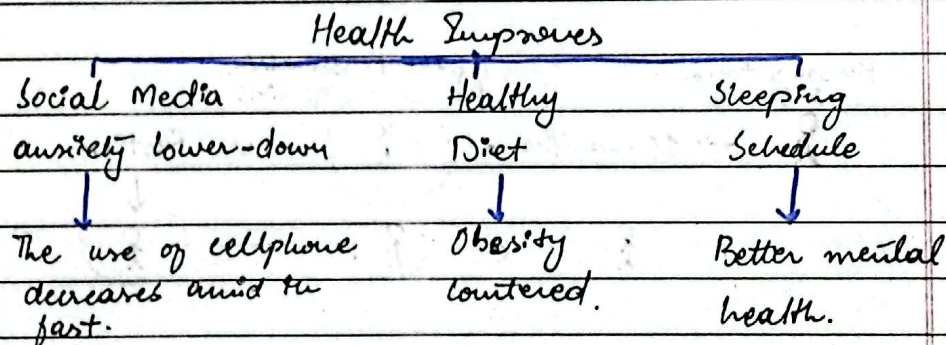 Health Improves
Social Media
anxiety lower-down
Healthy
Diet
Sleeping
Schedule
The use of cellphone
decreases amid the
fast.
Obesity
countered.
Better mental
health.